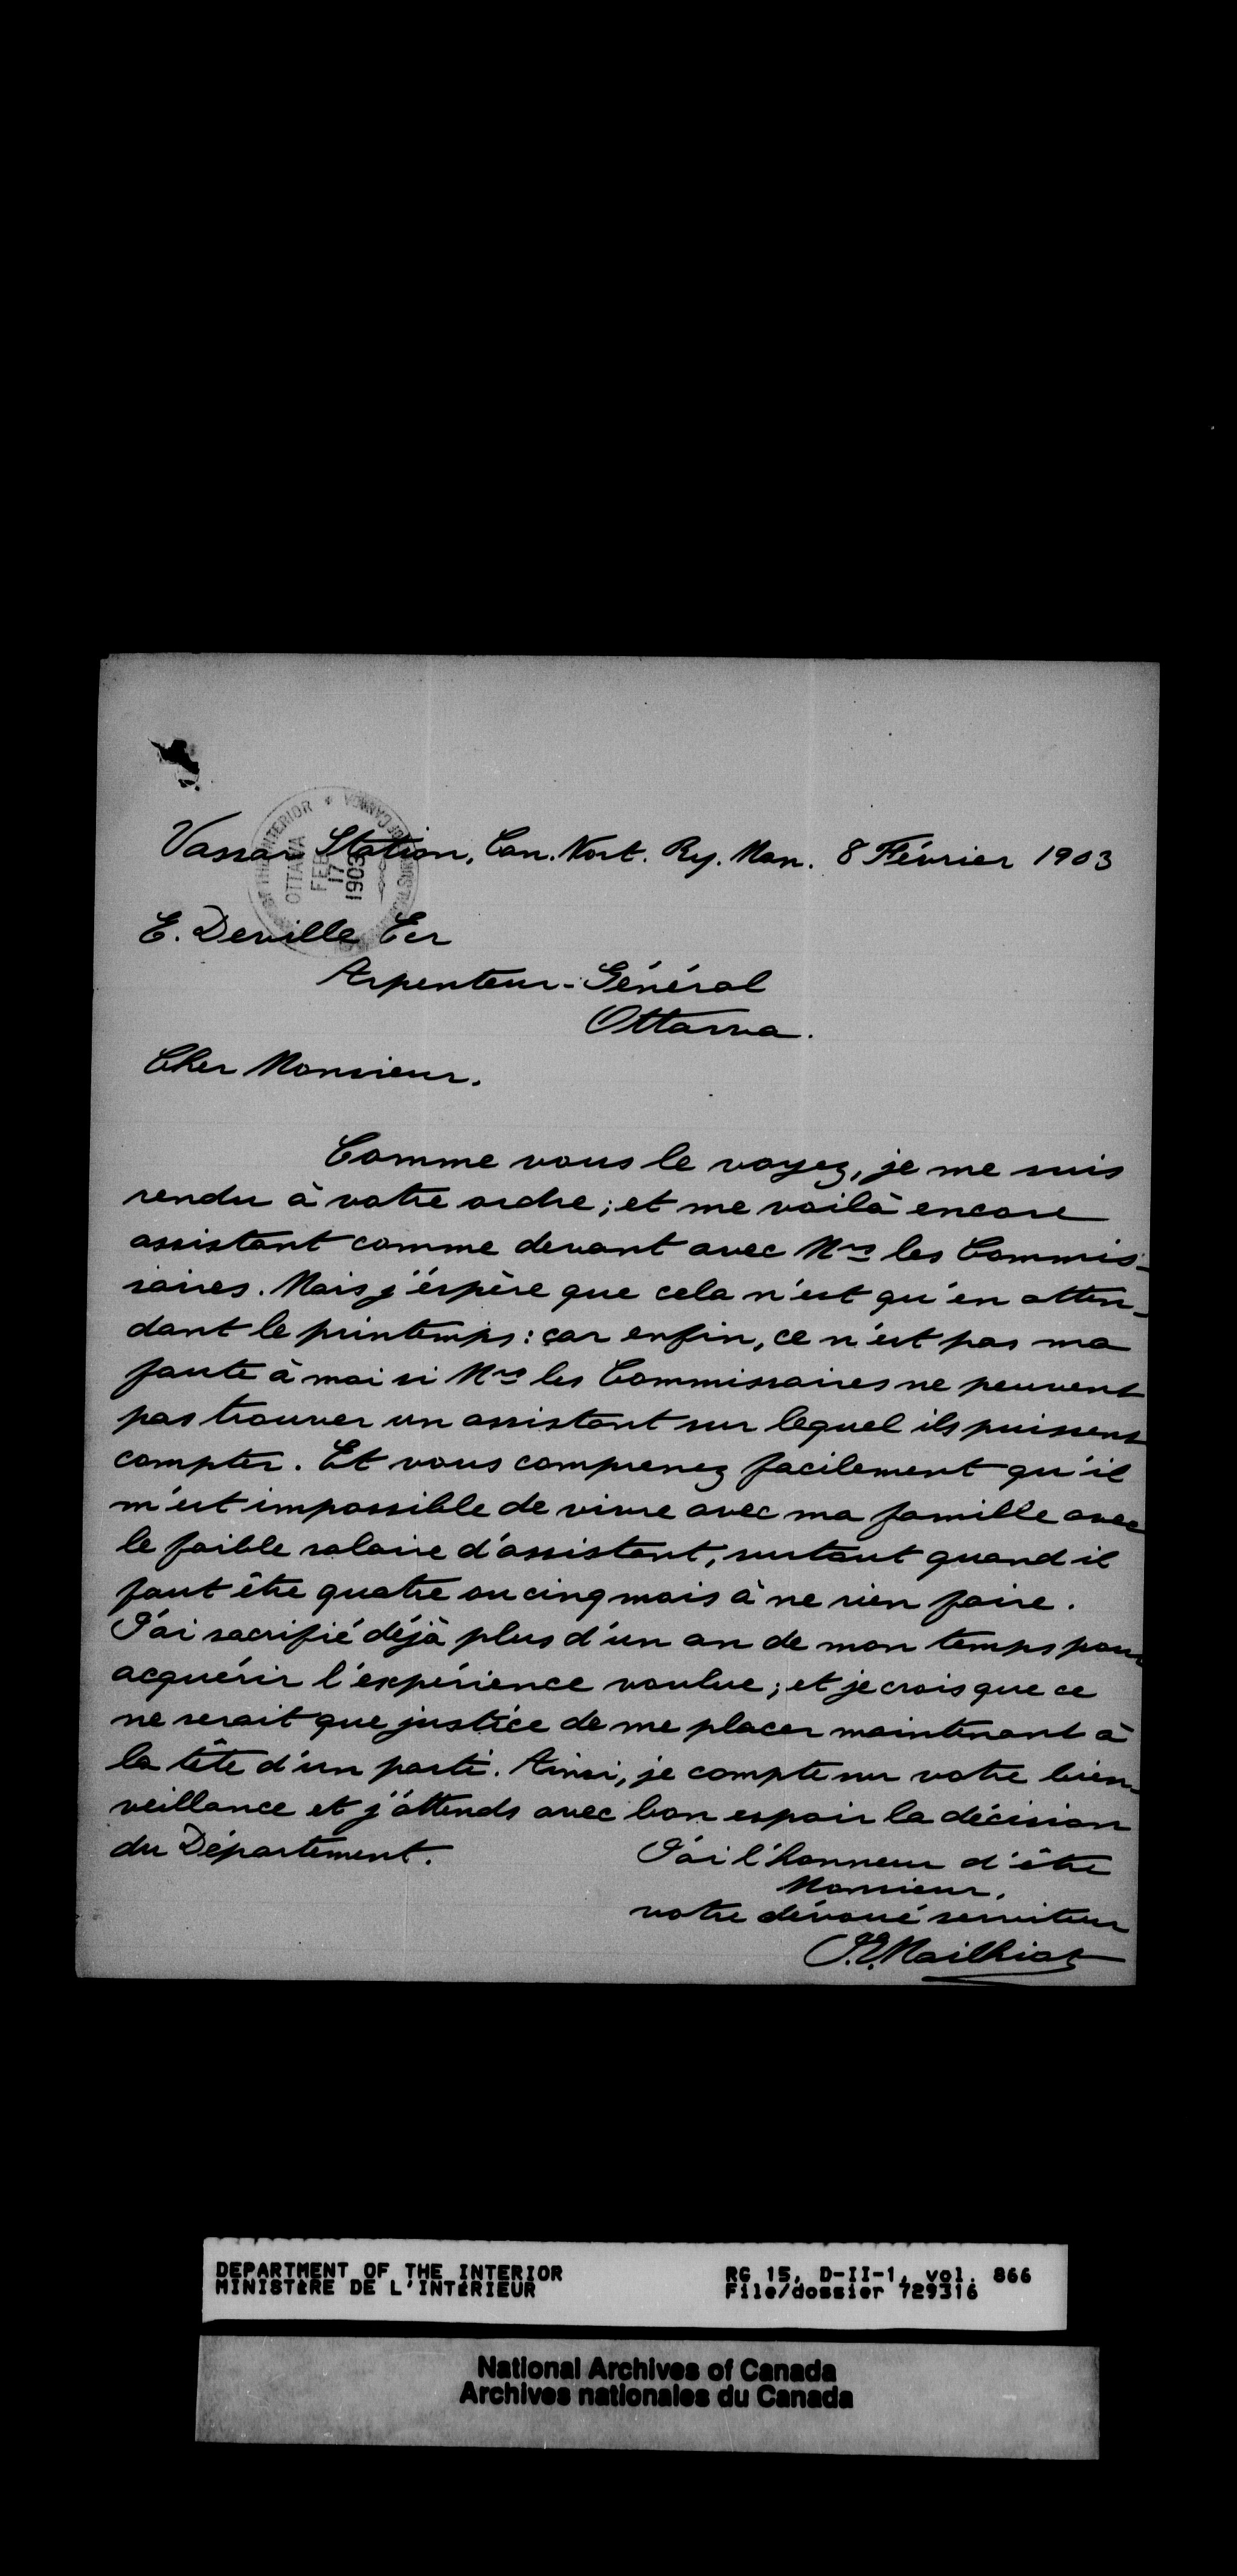 Vassar Station, Can. Nort. Ry. Man. 8 Février 1903
OTTAWA
FEB
17
1903
E. Deville Ecr
Arpenteur-Général
Ottawa.
Cher Monsieur.
Comme vous le voyez, je me suis
rendu à votre ordre; et me voilà encore
assistant comme devant avec Mrs les Commis-
saires. Mais j'éspère que cela n'est qu'en atten-
dant le printemps: car enfin, ce n'est pas ma
faute à moi si Mrs les Commissaires ne peuvent
pas trouver un assistant sur lequel ils puissent
compter. Et vous comprenez facilement qu'il
m'est impossible de vivre avec ma famille avec
le faible salaire d'assistant, surtout quand il
faut être quatre ou cinq mois à ne rien faire.
J'ai sacrifié déjà plus d'un an de mon temps pour
acquérir l'expérience voulue; et je crois que ce
ne serait que justice de me placer maintenant à
la tête d'un parti. Ainsi, je compte sur votre bien-
veillance et j'attends avec bon espoir la décision
du Département.
J'ai l'honneur d'être
Monsieur,
votre dévoué serviteur
J.E. Mailhiot
DEPARTMENT OF THE INTERIOR
MINISTÈRE DE L'INTÉRIEUR
RG 15, D-II-1, vol. 866
File/dossier 729316
National Archives of Canada
Archives nationales du Canada